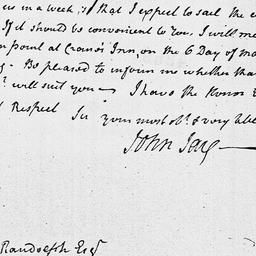 in a week, & that I expect to sail the
If it should be convenient to You, I will me
on board at Crows' Inn, on the 6 Day of
Be pleased to inform me whether tha
will suit you — I have the Honor
Respect Sir your most ob.t & very
John Jay —
Randolph Esq.r